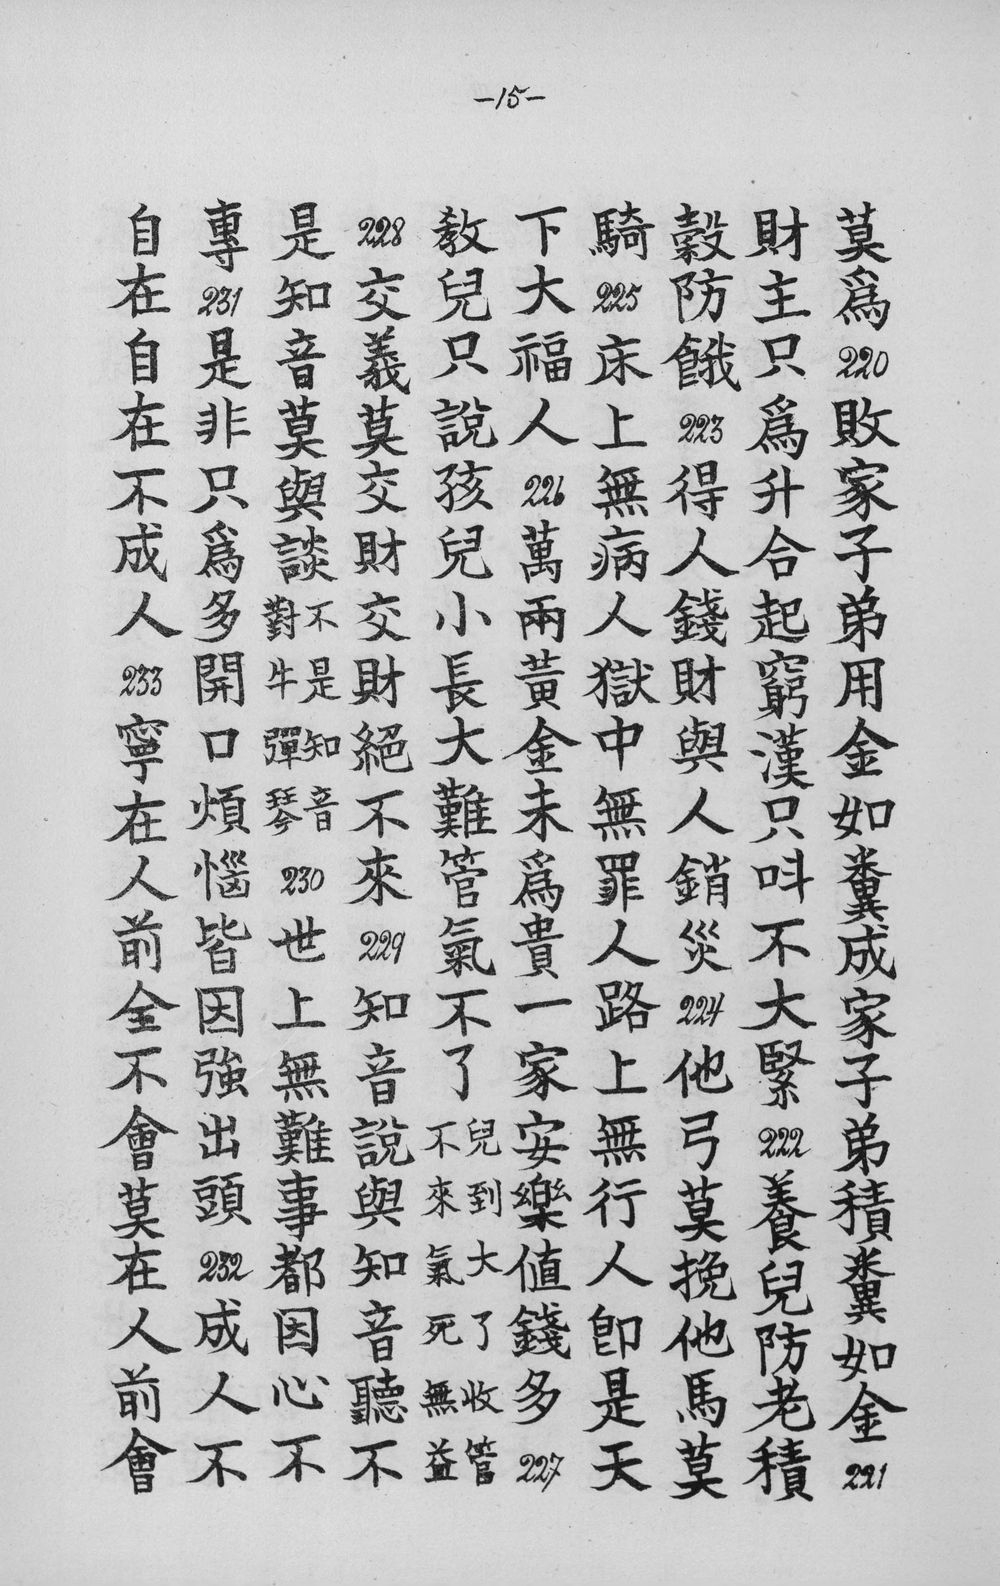 —15—
莫爲220敗家子弟用金如糞成家子弟積糞如金221
財主只爲升合起窮漢只呌不大緊222養兒防老積
糓防餓223得人錢財與人銷災224他弓莫挽他馬莫
騎225床上無病人獄中無罪人路上無行人卽是天
下大福人226萬兩黃金未爲貴一家安樂値錢多227
教兒只說孩兒小長大難管氣不了兒到大了收管不來氣死無益
228交義莫交財交財絕不來229知音說與知音聽不
是知音莫與談不是知音對牛彈琴230世上無難事都因心不
專231是非只爲多開口煩惱皆因強出頭232成人不
自在自在不成人233寧在人前全不會莫在人前會